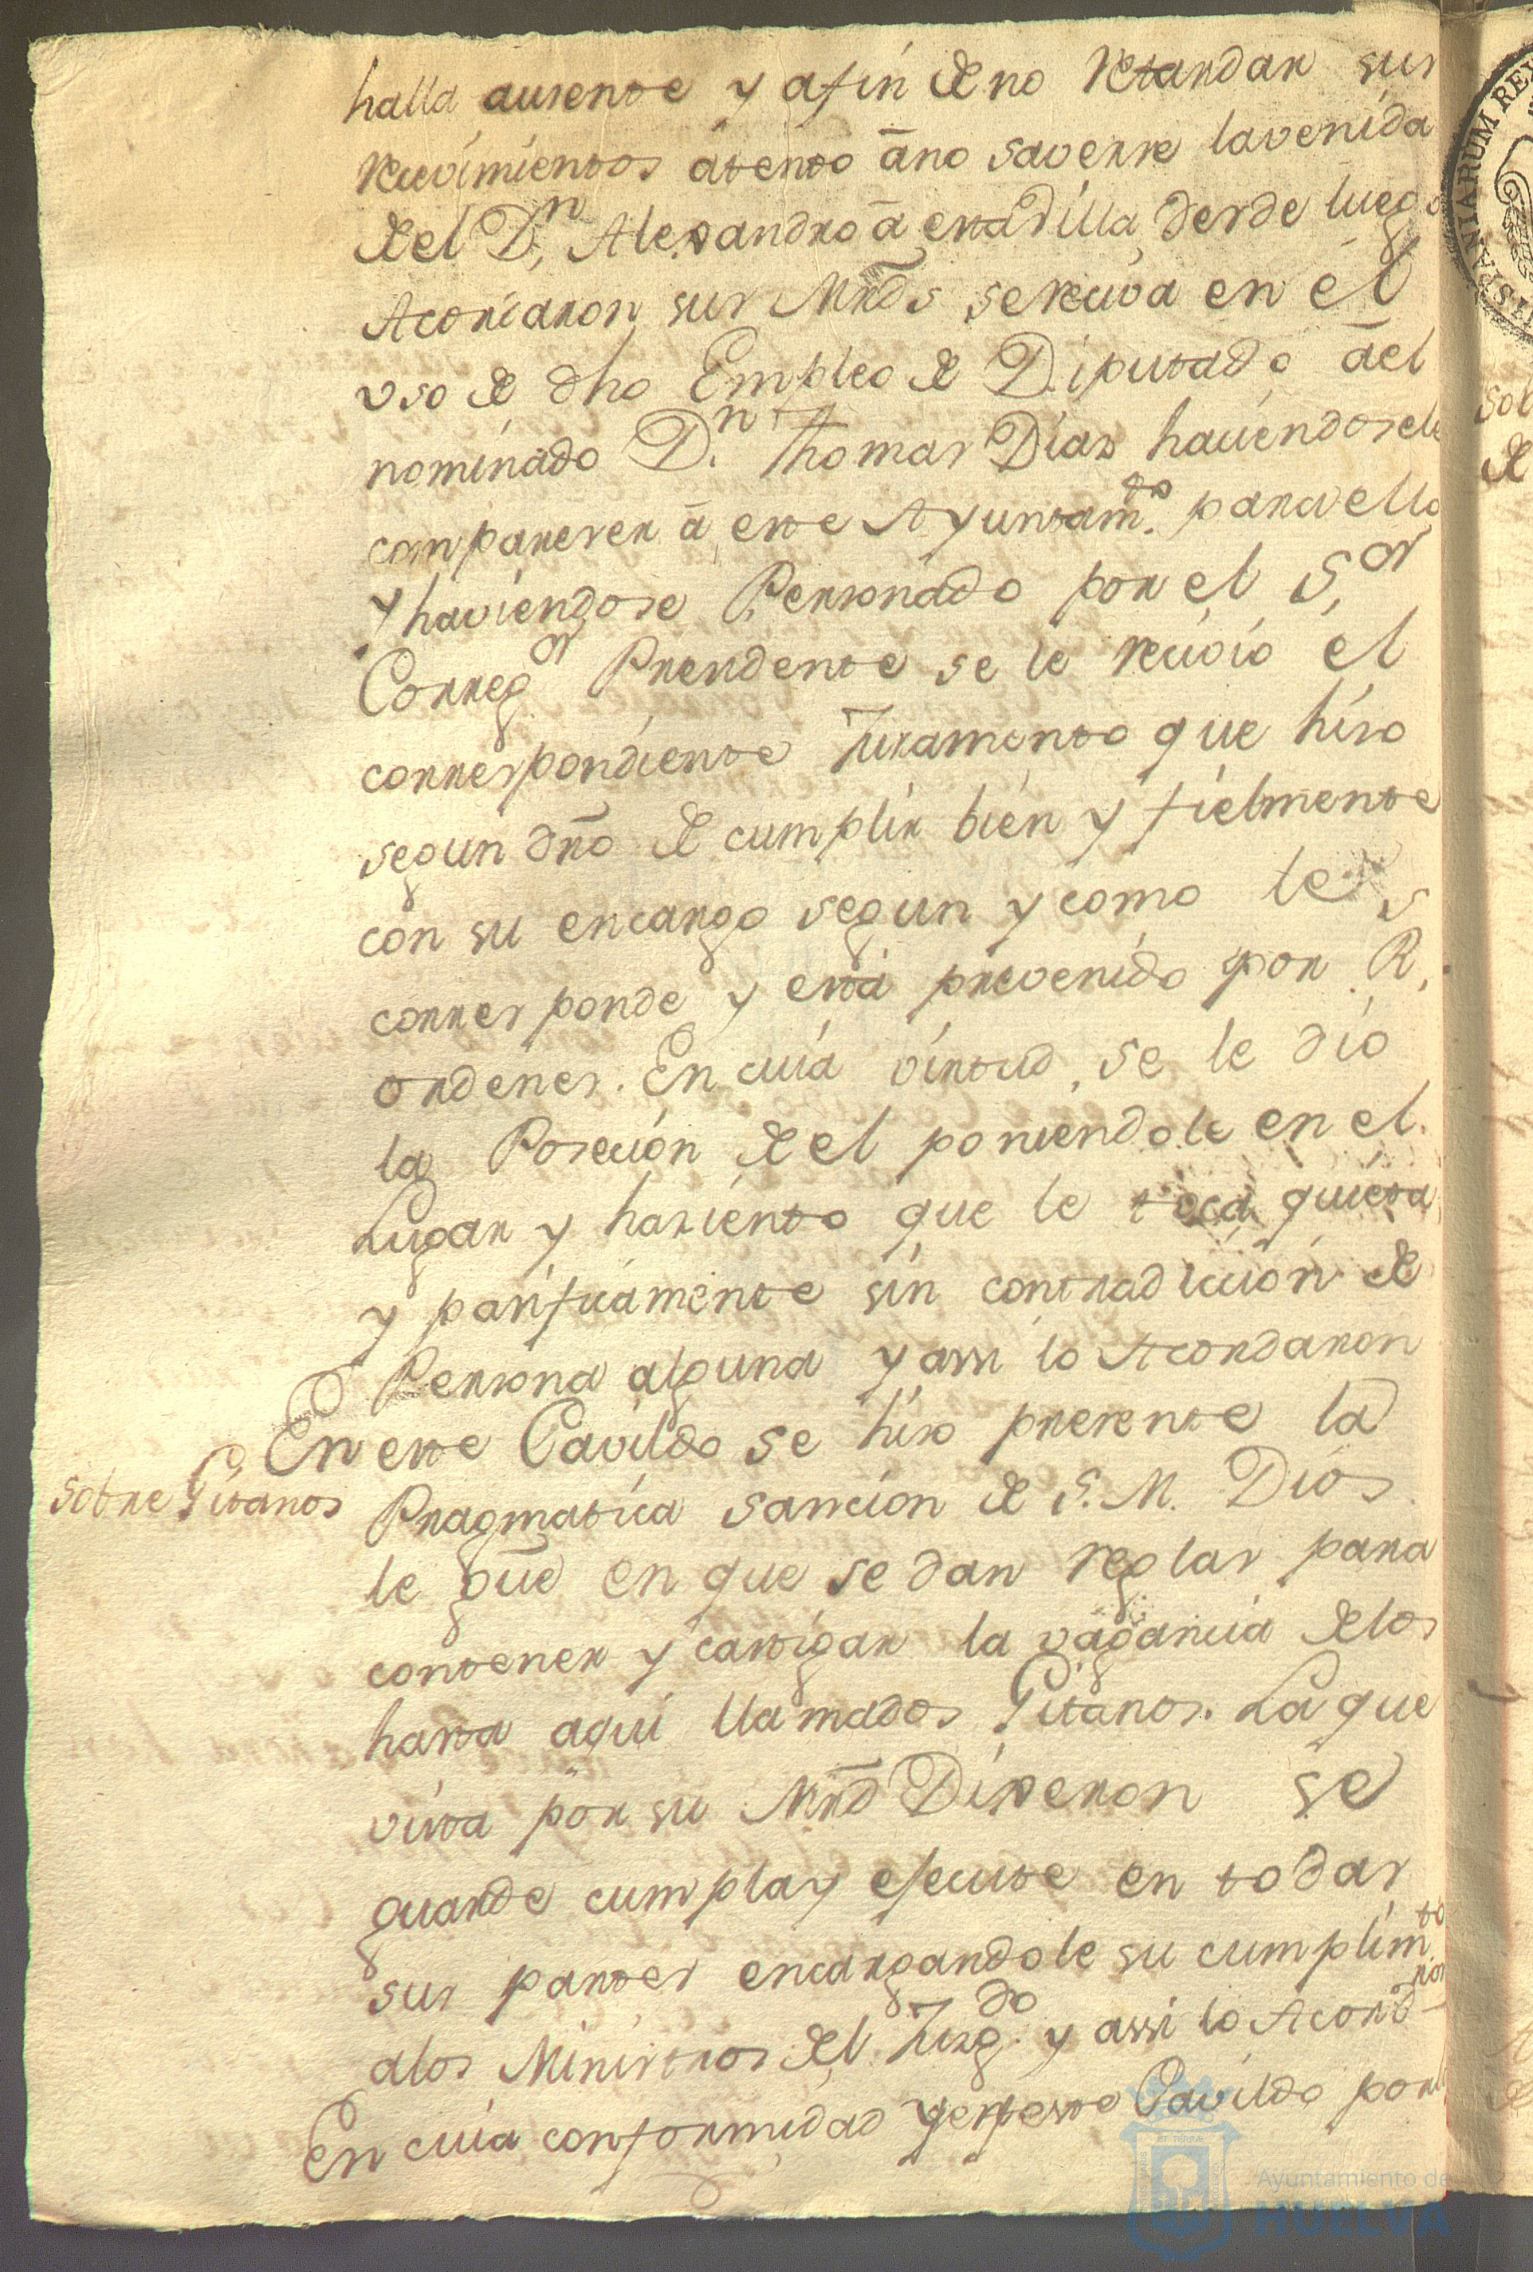 halla ausente y afin de no Retardar sus
Recivimientos átento áno saverse la venida
de el Dn, Alexandro á esta Villa, desde luego
Acordaron sus Mrds se reciva en él
vso de dho Empleo de Diputado ael
nominado Dn. Thomas Dias haciendosele
comparecer á este Ayuntamto. para ello
y haviendose Personado por el Sor
Corregor Presidente se le recivio el
correspondiente Juramento que hiso
segun dro de cumplir bien y fielmente
con su encargo segun y como le
corresponde y está prevenido por R,
ordenes. En cuia virtud, se le dio
la Poseción de el poniendole en el
Lugar y hasiento que le toca quieta
y pasificamente sin contradiccion de
Persona alguna y assi lo Acordaron
En este Cavildo se hiso presente la
sobre Gitanos
Pragmatica sancion de S. M. Dios
le gue en que se dan reglas para
contener y castigar la vagancia de los
hasta aqui llamados Gitanos. La que
vista por su Mrd Dixeron se
guarde cumpla y ejecute en todas
sus partes encargandole su cumplimto
alos Ministros del Juzgdo. y assi lo Acordron
En cuia conformidad y en este Cavildo por
Ayuntamiento de
HUELVA
HISPANIARUM RE
sob
de